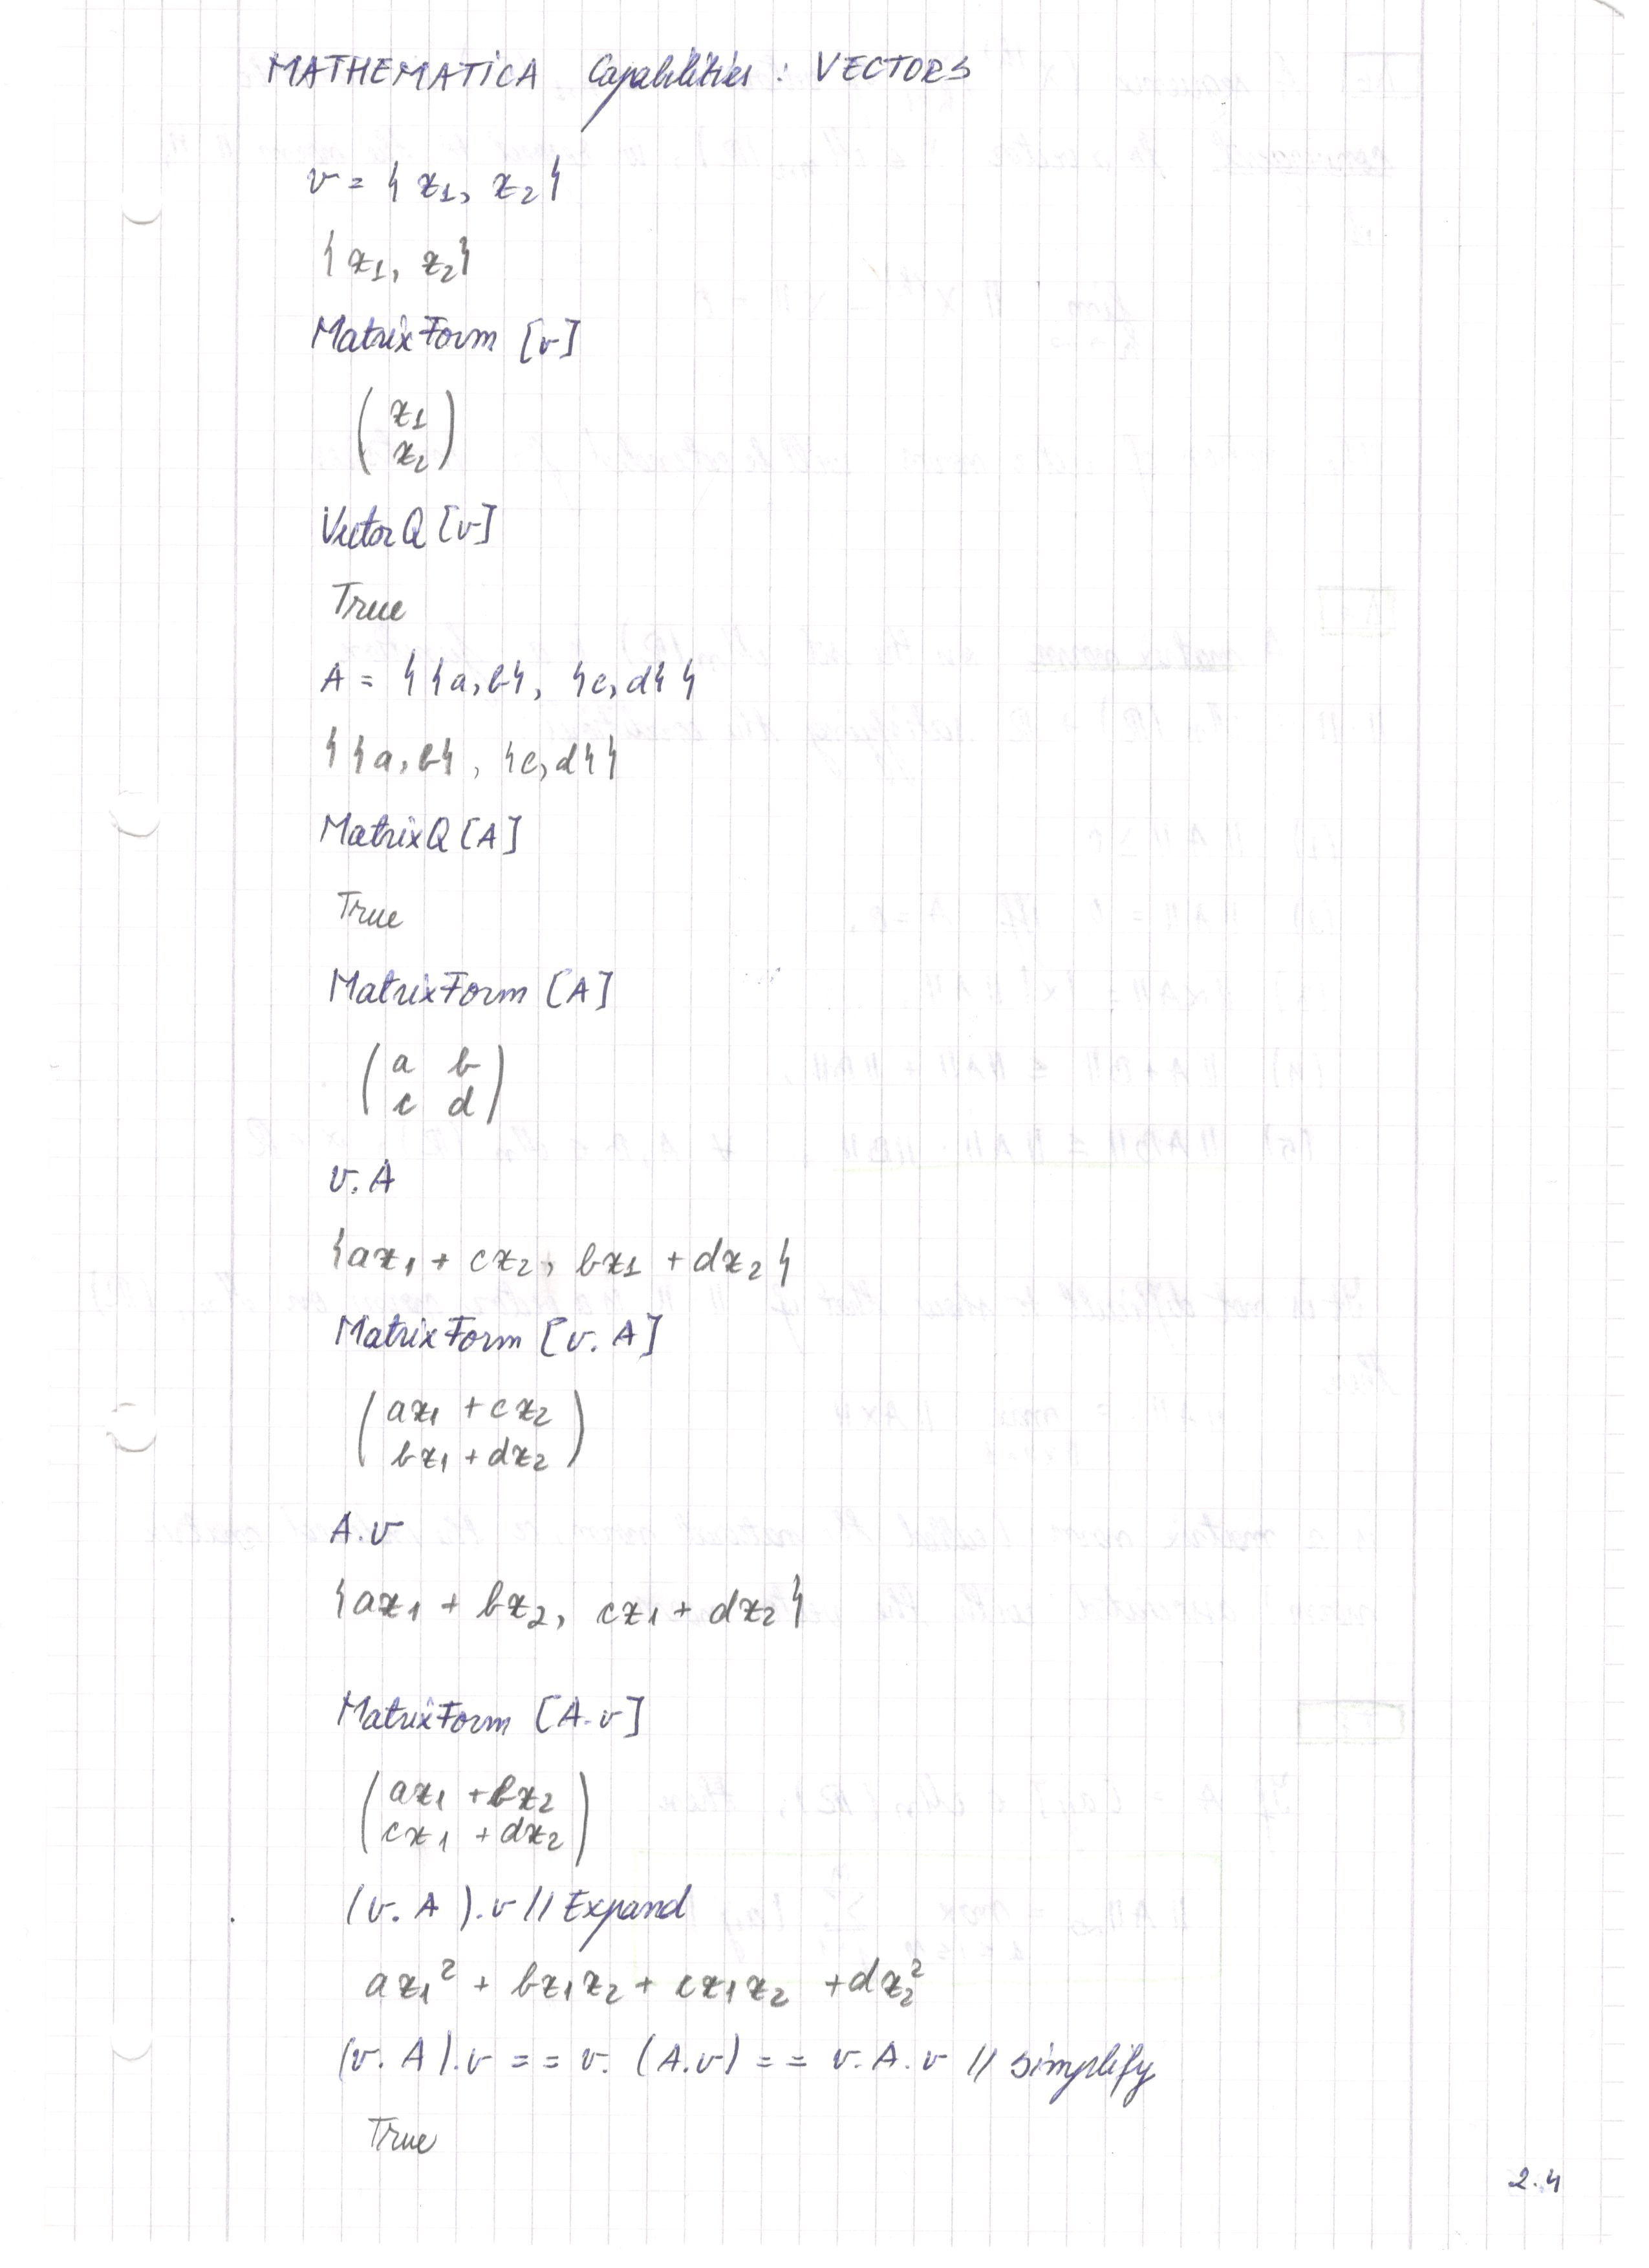 MATHEMATICA Capabilities : VECTORS
v = { x₁, x₂ }
{ x₁, x₂ }
MatrixForm [v]
( x₁
x₂ )
VectorQ [v]
True
A = { {a, b}, {c, d} }
{ {a, b} , {c, d} }
MatrixQ [A]
True
MatrixForm [A]
( a b
c d )
v. A
{ax₁ + cx₂, bx₁ + dx₂ }
MatrixForm [v. A]
( ax₁ + cx₂
bx₁ + dx₂ )
A.v
{ax₁ + bx₂, cx₁ + dx₂}
MatrixForm [A.v]
( ax₁ + bx₂
cx₁ + dx₂ )
(v. A ).v // Expand
ax₁² + bx₁x₂ + cx₁x₂ + dx₂²
(v. A).v = = v. (A.v) = = v. A. v // simplify
True
2.4